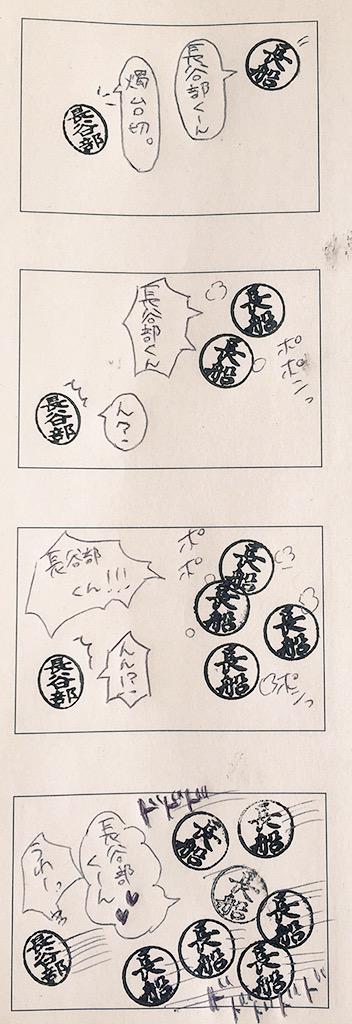 長船
長谷部くーん
燭台切。
長谷部
長船
長船
ポポンっ
長谷部くん
ん?
長谷部
長船
長船
長船
長船
ポポ
ポンっ
長谷部
くん!!!
んん!?
長谷部
ドドドド
長船
長船
長船
長船
長船
長船
長船
長谷部
くーん
長谷部
ドドドドド